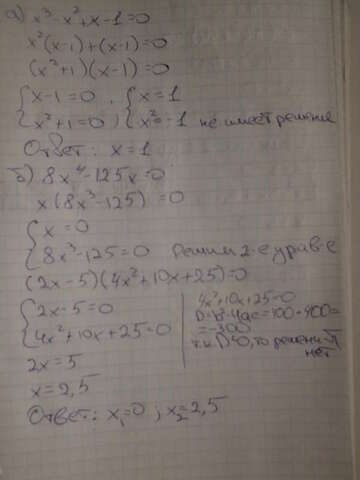 а) x³-x²+x-1=0
x²(x-1)+(x-1)=0
(x²+1)(x-1)=0
{x-1=0 , {x=1
{x²+1=0 ; {x²=-1 не имеет решения
Ответ: x=1
б) 8x⁴-125x=0
x(8x³-125)=0
{x=0
{8x³-125=0 Решим 2-е урав-е
(2x-5)(4x²+10x+25)=0
{2x-5=0
{4x²+10x+25=0
2x=5
x=2,5
4x²+10x+25=0
D=b²-4ac=100-400=
=-300
т.к D<0, то решений
нет
Ответ: x₁=0 ; x₂=2,5